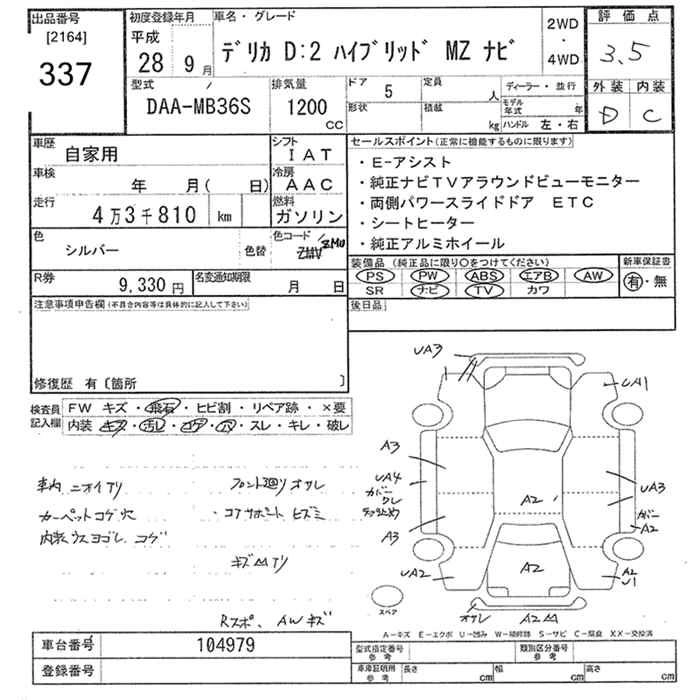 出品番号
[2164]
337
初度登録年月
平成
28 9月
車名・グレード
デリカ D:2 ハイブリッド MZ ナビ
2WD
・
4WD
評価点
3.5
外装 内装
D C
型式
DAA-MB36S
排気量
1200
CC
ドア 5
形状
定員 人
積載 kg
ディーラー・並行
モデル年式 年
ハンドル 左・右
車歴
自家用
シフト
IAT
車検
年 月( 日)
冷房
AAC
走行
4万3千810 km
燃料
ガソリン
色
シルバー
色替
色コード
ZMU
R券
9,330円
名変通知期限
月 日
セールスポイント(正常に機能するものに限ります)
・E-アシスト
・純正ナビTVアラウンドビューモニター
・両側パワースライドドア ETC
・シートヒーター
・純正アルミホイール
装備品(純正品に限り○をつけてください)
PS PW ABS エアB AW
SR ナビ TV カワ
新車保証書
有・無
後日品
注意事項申告欄(不具合内容等は具体的に記入して下さい)
修復歴 有〔箇所 〕
検査員記入欄
FW キズ・飛石・ヒビ割・リペア跡・×要
内装 キズ・汚レ・コゲ・穴・スレ・キレ・破レ
車内ニオイアリ
カーペットコゲ穴
内装ウスヨゴレ、コゲ
フロント廻リオサレ
・コアサポートヒズミ
キズ凹アリ
Rスポ、AWキズ
UA3
UA1
A3
UA4
カバー
ワレ
A3
UA2
A2
A2
UA3
カバー
A2
A2
U1
オサレ A2凹
スペア
A-キズ E-エクボ U-凹み W-補修跡 S-サビ C-腐食 XX-交換済
車台番号
104979
登録番号
型式指定番号
参考
類別区分番号
参考
車庫証明用
参考
長さ cm
幅 cm
高さ cm